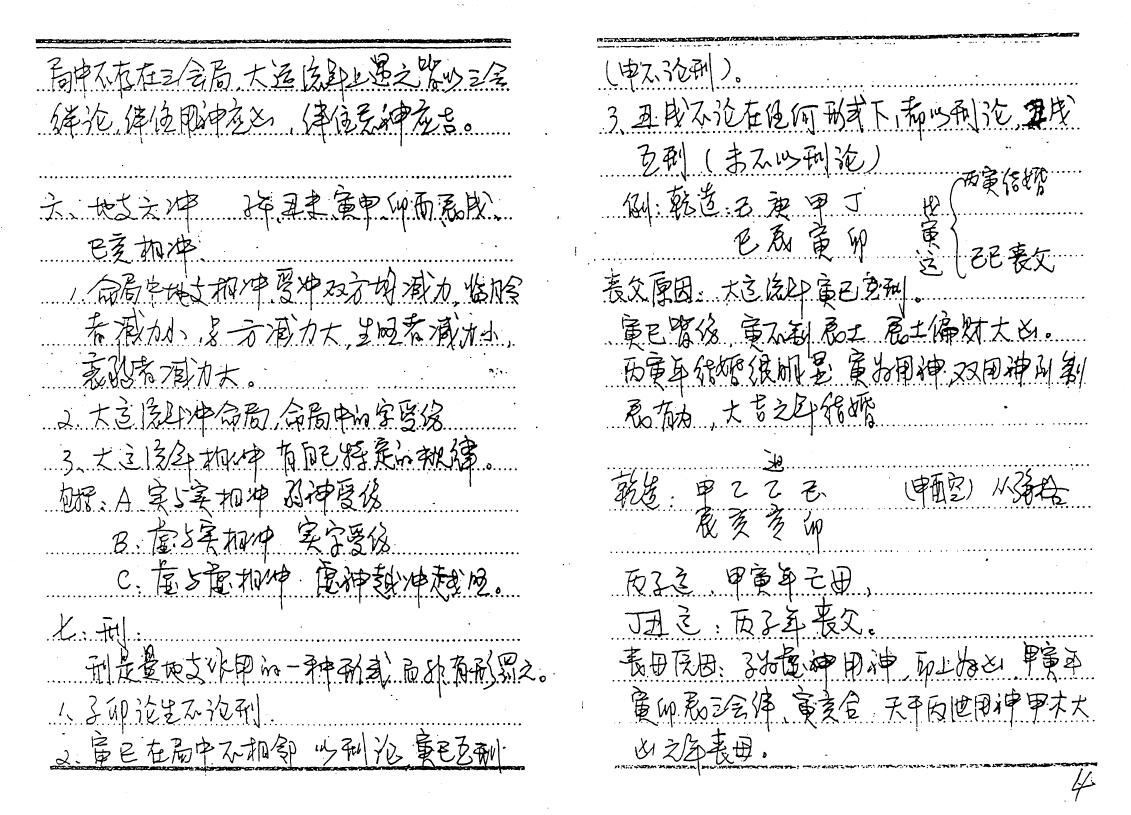 局中不存在三会局,大运流年上遇之皆以三会
绊论,绊住用神应凶,绊住忌神应吉。
六、地支六冲 子午、丑未、寅申、卯酉、辰戌、
巳亥相冲.
1.命局中地支相冲,受冲双方均减力,临月令
者减力小,另一方减力大,生旺者减力小,
衰弱者减力大。
2.大运流年冲命局,命局中的字受伤
3、大运流年相冲 有自己特定的规律。
包括:A 实与实相冲 弱神受伤
B:虚与实相冲 实字受伤
C:虚与虚相冲 虚神越冲越旺。
七:刑:
刑是地支作用的一种形式,而非有形罪之。
1、子卯论生不论刑.
2、寅巳在局中不相邻 以刑论,寅巳互刑
(申不论刑)。
3、丑戌不论在任何形式下,都以刑论,丑戌
互刑(未不以刑论)
例:乾造:己 庚 甲 丁
巳 辰 寅 卯
寅运
丙寅结婚
己巳丧父
丧父原因:大运流年寅巳互刑。
寅巳皆伤,寅不制辰土 辰土偏财大凶。
丙寅年结婚很明显,寅为用神,双用神所制
辰有力,大吉之年结婚
乾造:甲 乙 乙 己 (申酉空) 从强格
辰 亥 亥 卯
丙子运、甲寅年亡母,
丁丑运:丙子年丧父。
丧母原因:子为虚神用神,印上好凶,甲寅年
寅卯辰三会绊、寅亥合 天干丙泄用神甲木大
凶之年丧母。
4